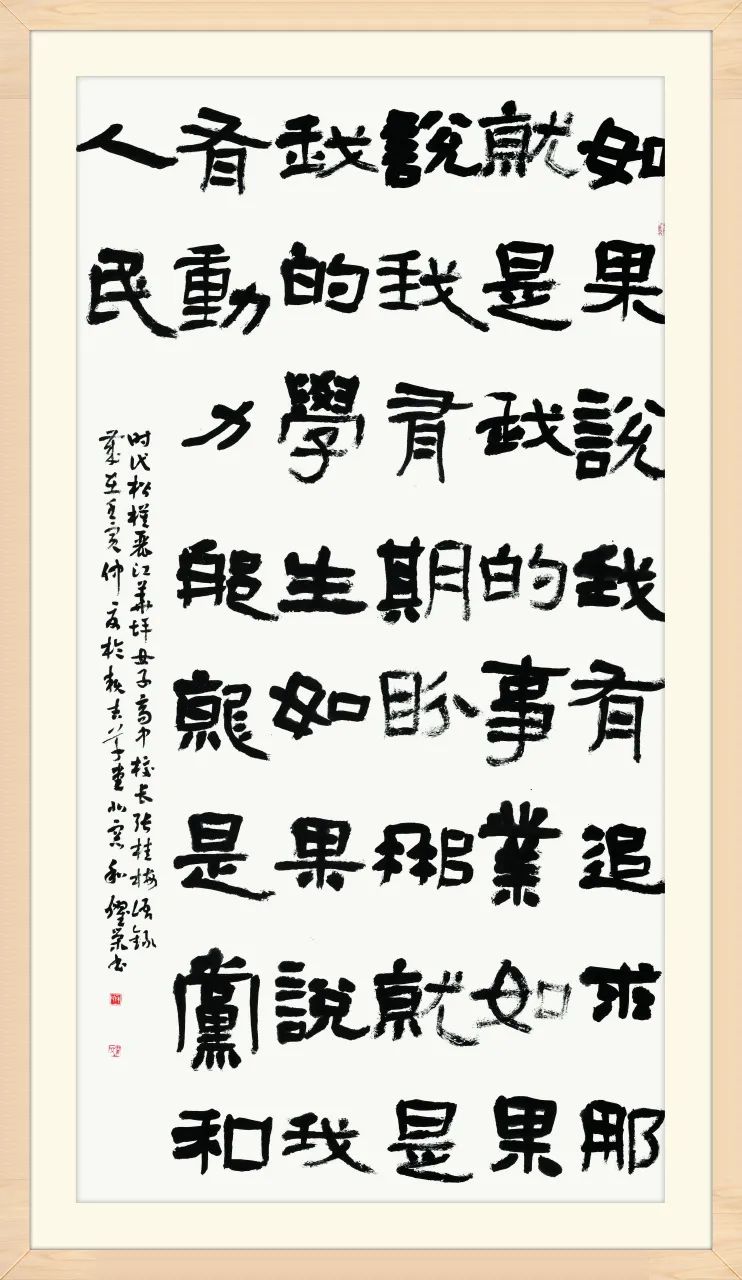 如果說我有追求那
就是我的事業如果
說我有期盼那就是
我的學生如果說我
有動力那就是黨和
人民
时代楷模麗江華坪女子高中校长张桂梅语錄
歲在壬寅仲夏於草堂北窗和榮书